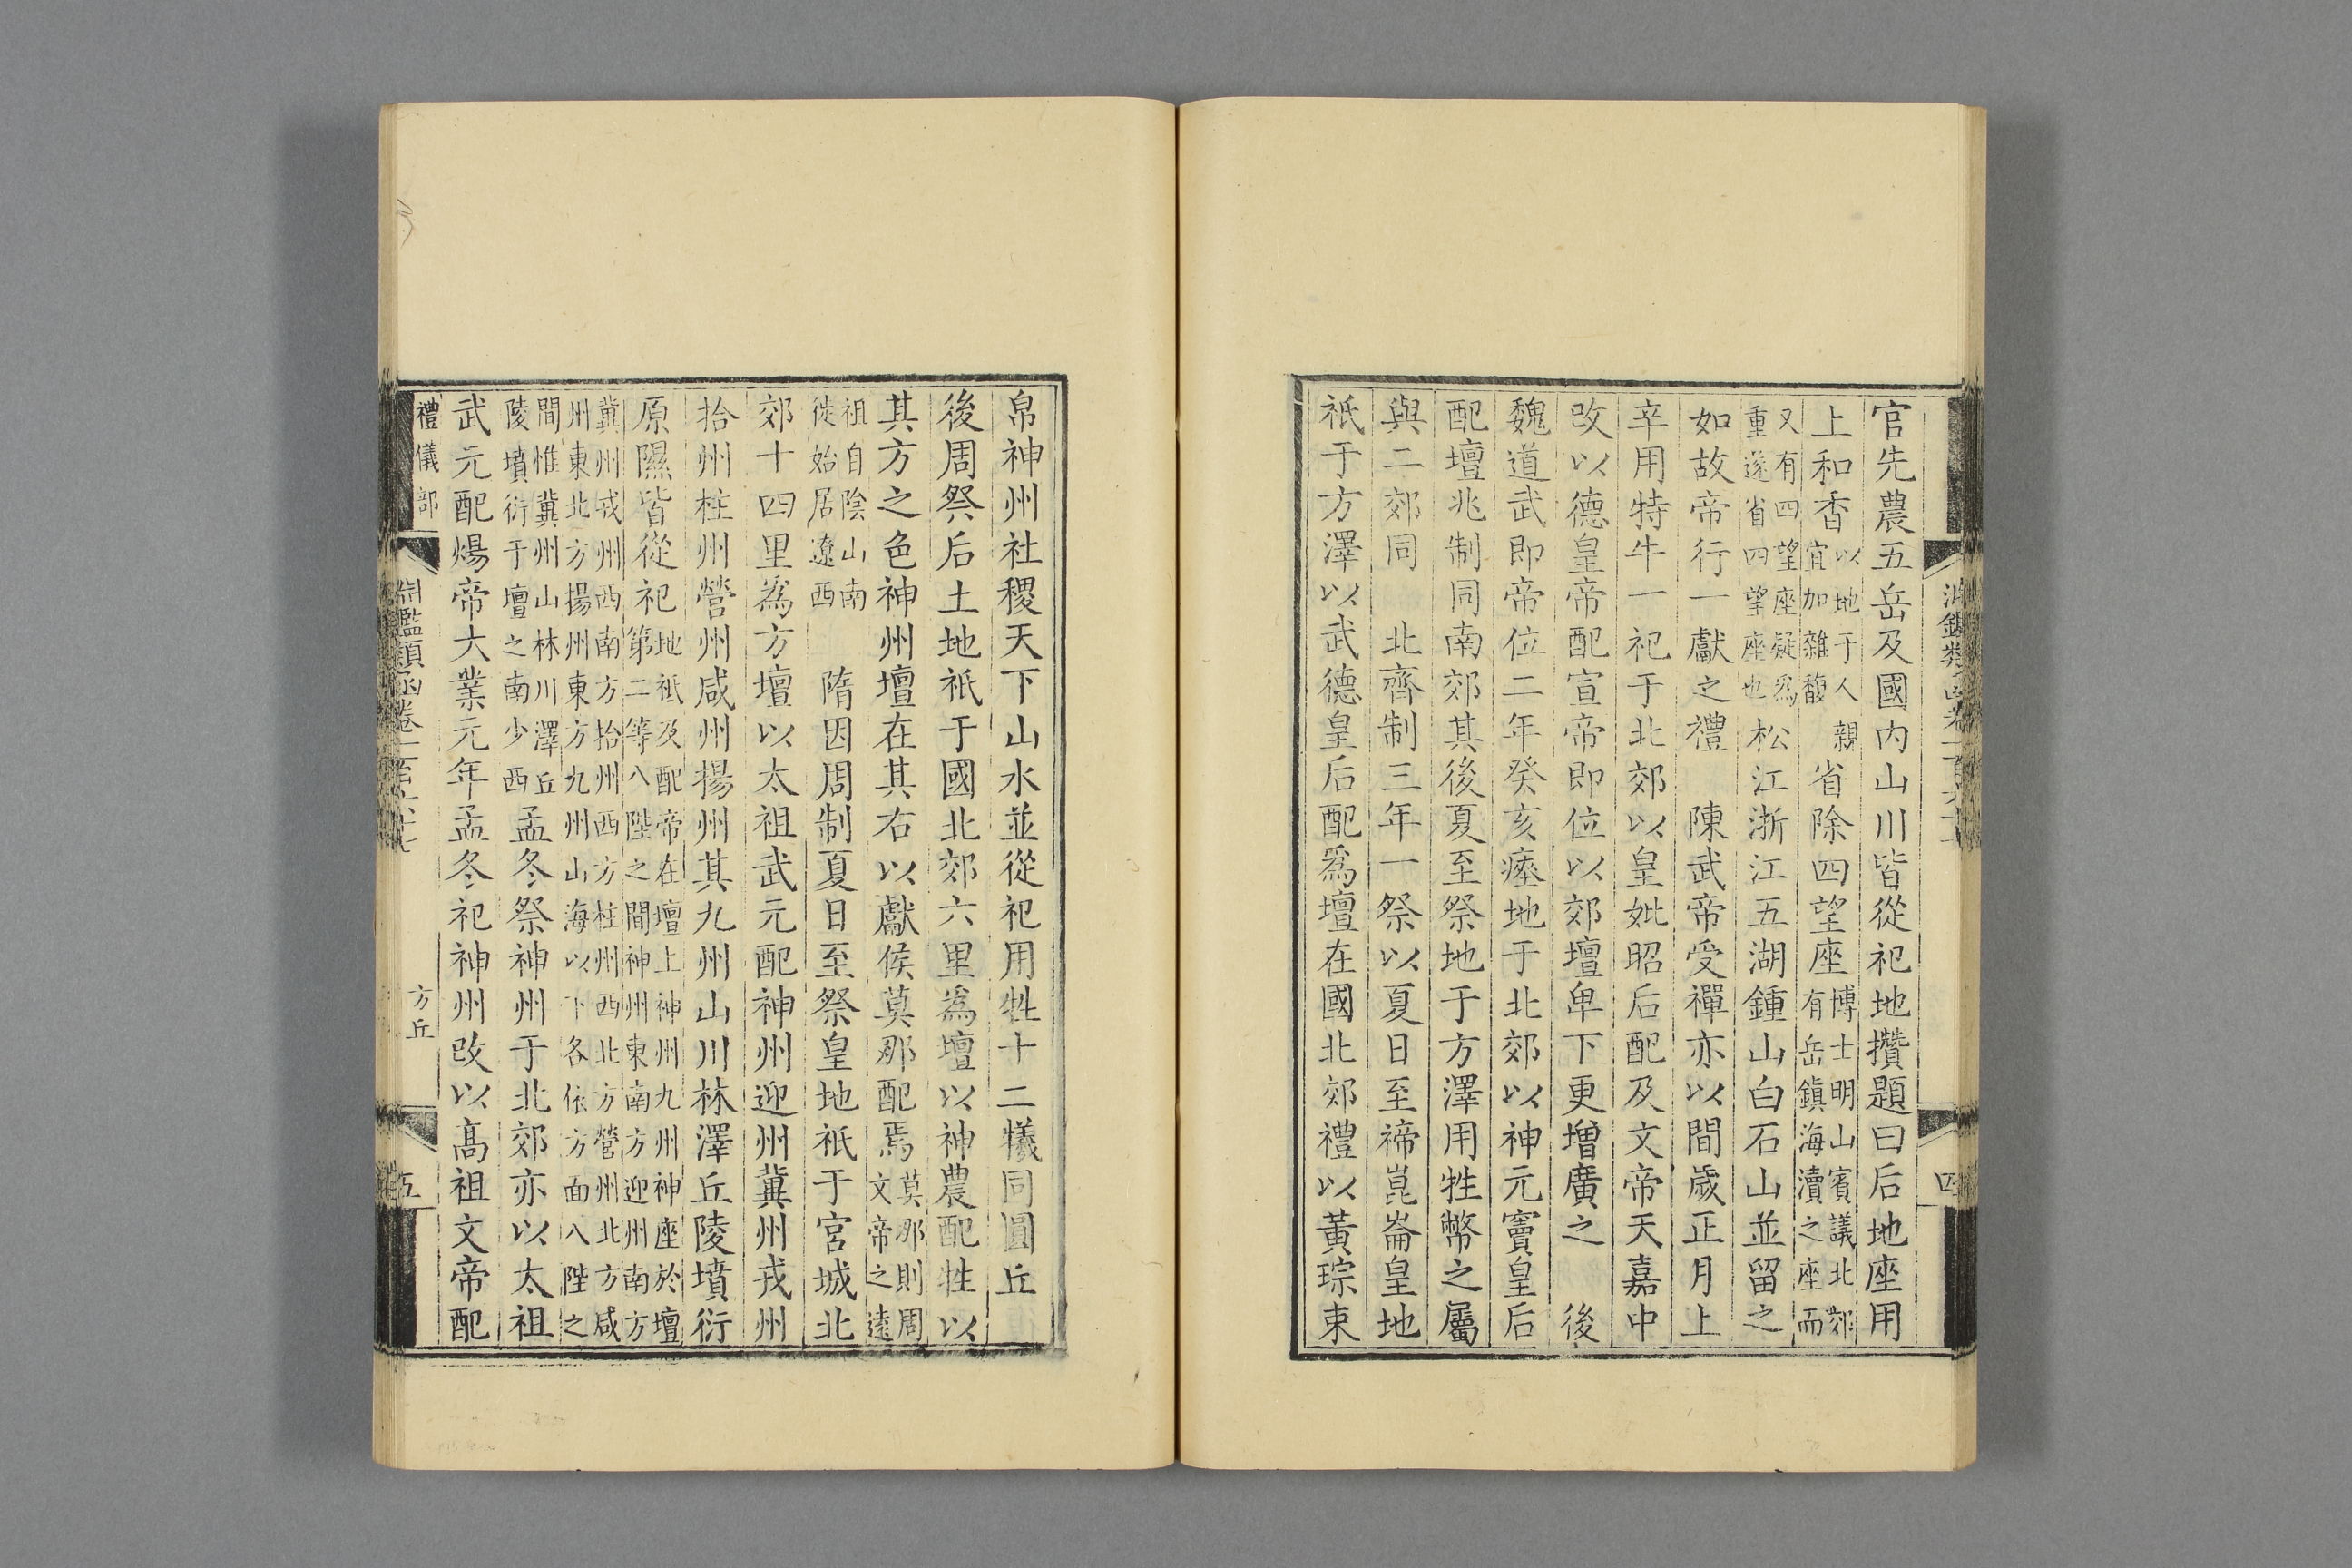 官先農五岳及國內山川皆從祀地攢題曰后地座用
上和香以地于人親宜加雜馥省除四望座博士明山賓議北郊有岳鎮海瀆之座而
又有四望座疑爲重遂省四望座也松江浙江五湖鍾山白石山並留之
如故帝行一獻之禮 陳武帝受禪亦以間歲正月上
辛用特牛一祀于北郊以皇妣昭后配及文帝天嘉中
改以德皇帝配宣帝即位以郊壇卑下更增廣之 後
魏道武即帝位二年癸亥瘞地于北郊以神元竇皇后
配壇兆制同南郊其後夏至祭地于方澤用牲幣之屬
與二郊同 北齊制三年一祭以夏日至禘崑崙皇地
祇于方澤以武德皇后配爲壇在國北郊禮以黃琮束
帛神州社稷天下山水並從祀用牲十二犧同圓丘
後周祭后土地祇于國北郊六里爲壇以神農配牲以
其方之色神州壇在其右以獻侯莫那配焉莫那則周文帝之遠
祖自陰山南徙始居遼西 隋因周制夏日至祭皇地祇于宮城北
郊十四里爲方壇以太祖武元配神州迎州冀州戎州
拾州柱州營州咸州揚州其九州山川林澤丘陵墳衍
原隰皆從祀地祇及配帝在壇上神州九州神座於壇第二等八陛之間神州東南方迎州南方
冀州戎州西南方拾州西方柱州西北方營州北方咸州東北方揚州東方九州山海以下各依方面八陛之
間惟冀州山林川澤丘陵墳衍于壇之南少西孟冬祭神州于北郊亦以太祖
武元配煬帝大業元年孟冬祀神州改以高祖文帝配
禮儀部
淵鑑類函卷一百五十七
方丘
五